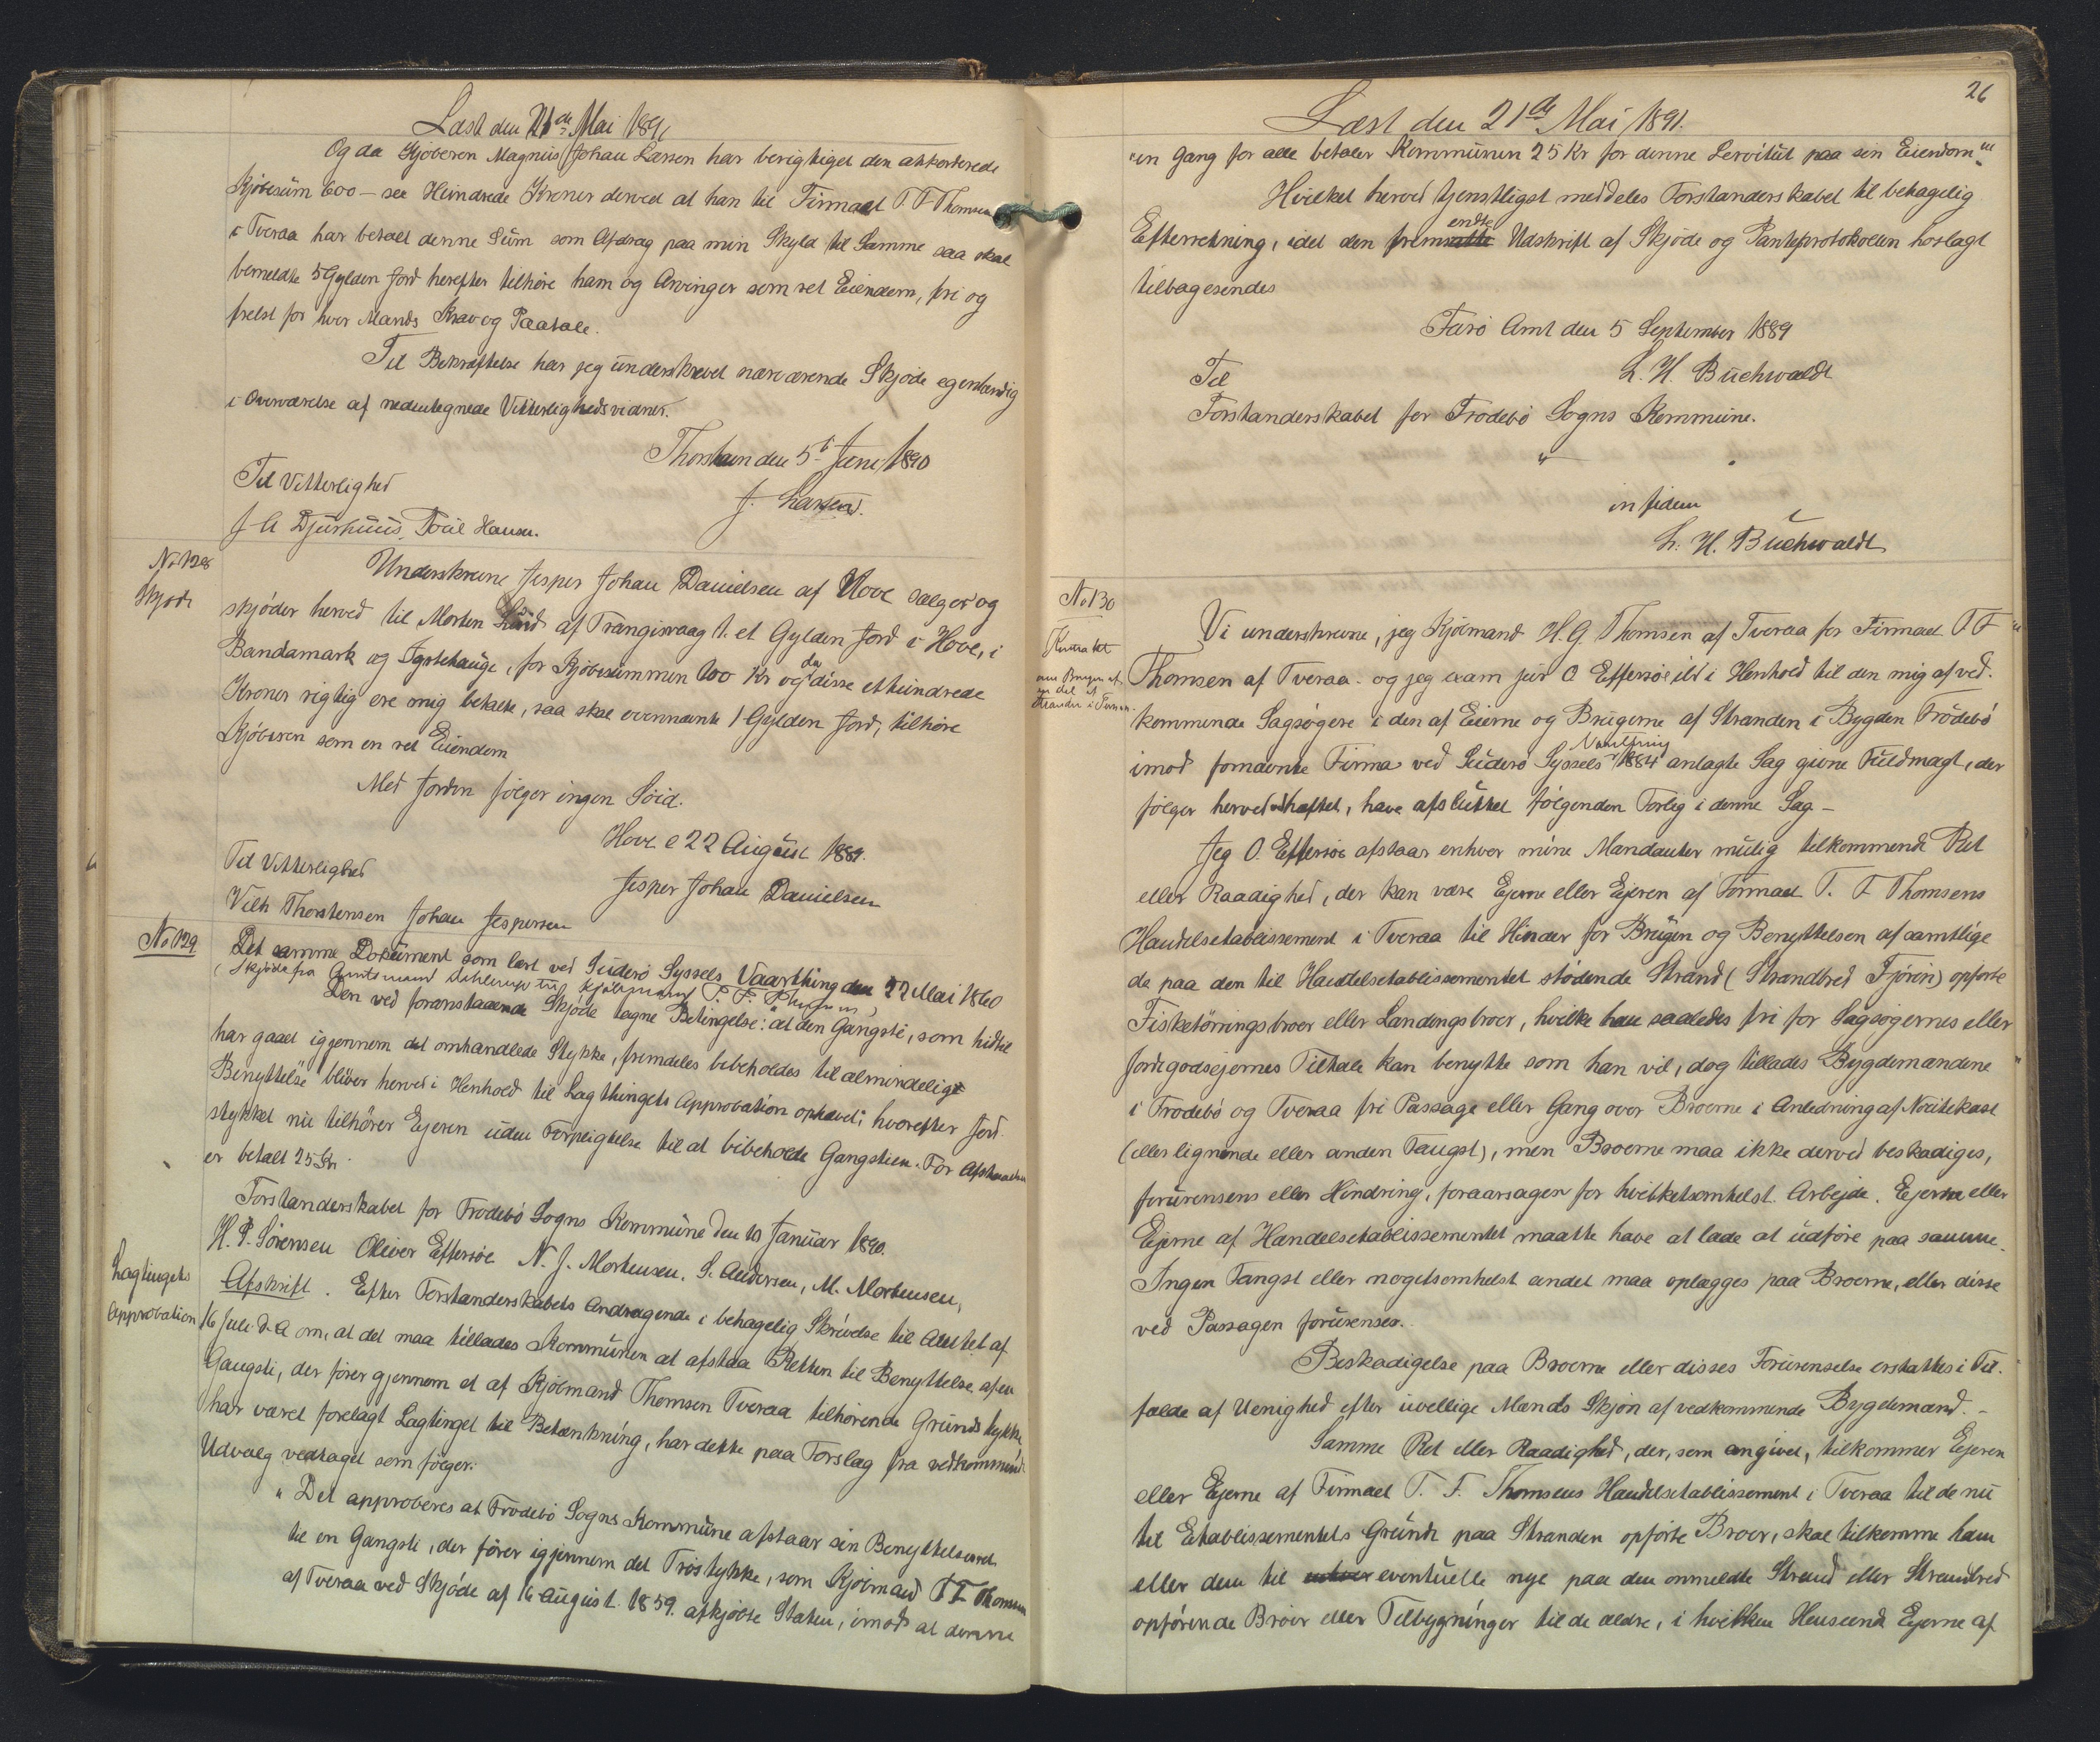 Læst den 21de Mai 1891
Og da Kjøberen Magnus Johan Larsen har berigtiget den akkorderede
Kjøbesum 600 – sex Hundrede Kroner derved at han til Firmaet T. F. Thomsen
i Tveraa har betalt denne Sum som Afdrag paa min Skyld til Samme saa skal
bemeldte 5 Gylden Jord herefter tilhøre ham og Arvinger som ret Eiendom, fri og
frelst for hver Mands Krav og Paatale.
Til Bekræftelse har jeg underskrevet nærværende Skjøde egenhændig
i Overværelse af nedentegnede Vitterlighedsvidner.
Thorshavn den 5t Juni 1890
J. Larsen.
Til Vitterlighed
J A Djurhuus, Poul Hansen.
No 128
Skjøde
Underskrevne Jesper Johan Danielsen af Hove sælger og
skjøder herved til Morten Lund af Trangisvaag 1. et Gylden Jord i Hove, i
Bandamark og Ystehauge, for Kjøbesummen 100 Kr og da disse ethundrede
Kroner rigtig ere mig betalte, saa skal ovennævnte 1 Gylden Jord, tilhøre
Kjøberen som en ret Eiendom
Med Jorden følger ingen Söid.
Hove 22 August 1889.
Jesper Johan Danielsen
Til Vitterlighed
Vilh Thorstensen Johan Jespersen
No 129
Det samme Dokument som læst ved Suderø Syssels Vaarthing den 22 Mai 1860
(Skjøde fra Amtmand Dahlerup til Kjøbmand T. F. Thomsen)
Den ved foranstaaende Skjøde tagne Betingelse: "at den Gangsti, som hidtil
har gaaet igjennem det omhandlede Stykke, fremdeles bibeholdes til almindelig
Benyttelse" bliver herved i Henhold til Lagthingets Approbation ophævet; hvorefter Jord-
stykket nu tilhører Ejeren uden Forpligtelse til at bibeholde Gangstien. For Afstaaelsen
er betalt 25 Kr.
Forstanderskabet for Frodebø Sogns Kommune den 10 Januar 1890.
H. P. Sørensen Oliver Effersøe N. J. Mortensen. S. Andersen, M. Mortensen,
Lagtingets
Approbation
Afskrift. Efter Forstanderskabets Andragende i behagelig Skrivelse til Amtet af
16 Juli d. A om, at det maa tillades Kommunen at afstaa Retten til Benyttelse af en
Gangsti, der fører gjennem et af Kjøbmand Thomsen Tveraa tilhørende Grundstykke
har været forelagt Lagtinget til Betænkning, har dette paa Forslag fra vedkommende
Udvalg vedtaget som følger:
"Det approberes at Frodebø Sogns Kommune afstaar sin Benyttelsesret
til en Gangsti, der fører igjennem det Trøstykke, som Kjøbmand T F Thomsen
af Tveraa ved Skjøde af 16 August 1859 afkjøbte Staten, imod at denne
26
Læst den 21de Mai 1891.
"en Gang for alle betaler Kommunen 25 Kr for denne Servitut paa sin Eiendom".
Hvilket herved tjenstligst meddeles Forstanderskabet til behagelig
Efterretning, idet den fremsendte Udskrift af Skjøde og Panteprotokollen hoslagt
tilbagesendes
Færø Amt den 5 September 1889
L. H. Buchwaldt
Til
Forstanderskabet for Frodebø Sogns Kommune.
"
in fidem
L. H. Buchwaldt
No 130
Kontrakt
om Brugen af
en del af
Stranden i Tværaa.
Vi underskrevne, jeg Kjøbmand H. G. Thomsen af Tveraa for Firmaet T F
Thomsen af Tveraa. og jeg exam jur O Effersøe i Henhold til den mig af ved-
kommende Sagsøgere i den af Eierne og Brugerne af Stranden i Bygden Frodebø
imod fornævnte Firma ved Suderø Syssels Vaarthing 1884 anlagte Sag givne Fuldmagt, der
følger herved hæftet, have afsluttet følgenden Forlig i denne Sag –
Jeg O. Effersøe afstaar enhver mine Mandanter mulig tilkommende Ret
eller Raadighed, der kan være Ejerne eller Ejeren af Firmaet T. F Thomsens
Handelsetablissement i Tveraa til Hinder for Brugen og Benyttelsen af samtlige
de paa den til Handelsetablissementet stødende Strand (Strandbred Fjören) opførte
Fisketörringsbroer eller Landingsbroer, hvilke han saaledes fri for Sagsøgernes eller
Jordegodsejernes Tiltale kan benytte som han vil, dog tillades Bygdemændene
i Frodebø og Tveraa fri Passage eller Gang over Broerne i Anledning af Notekast
(eller lignende eller anden Fangst), men Broerne maa ikke derved beskadiges,
forurenses eller Hindring, foraarsages for hvilketsomhelst Arbejde. Ejeren eller
Ejerne af Handelsetablissementet maatte have at lade at udføre paa samme.
Ingen Fangst eller nogetsomhelst andet maa oplægges paa Broerne, eller disse
ved Passagen forurenses.
Beskadigelse paa Broerne eller disses Forurenselse erstattes i Til-
fælde af Uenighed efter uvillige Mænds Skjøn af vedkommende Bygdemænd. –
Samme Ret eller Raadighed, der, som angivet, tilkommer Ejeren
eller Ejerne af Firmaet T. F. Thomsens Handelsetablissement i Tveraa til de nu
til Etablissementets Grund paa Stranden opførte Broer, skal tilkomme ham
eller dem til eventuelle nye paa den ommeldte Strand eller Strandbred
opførende Broer eller Tilbygninger til de ældre, i hvilken Henseende Ejerne af